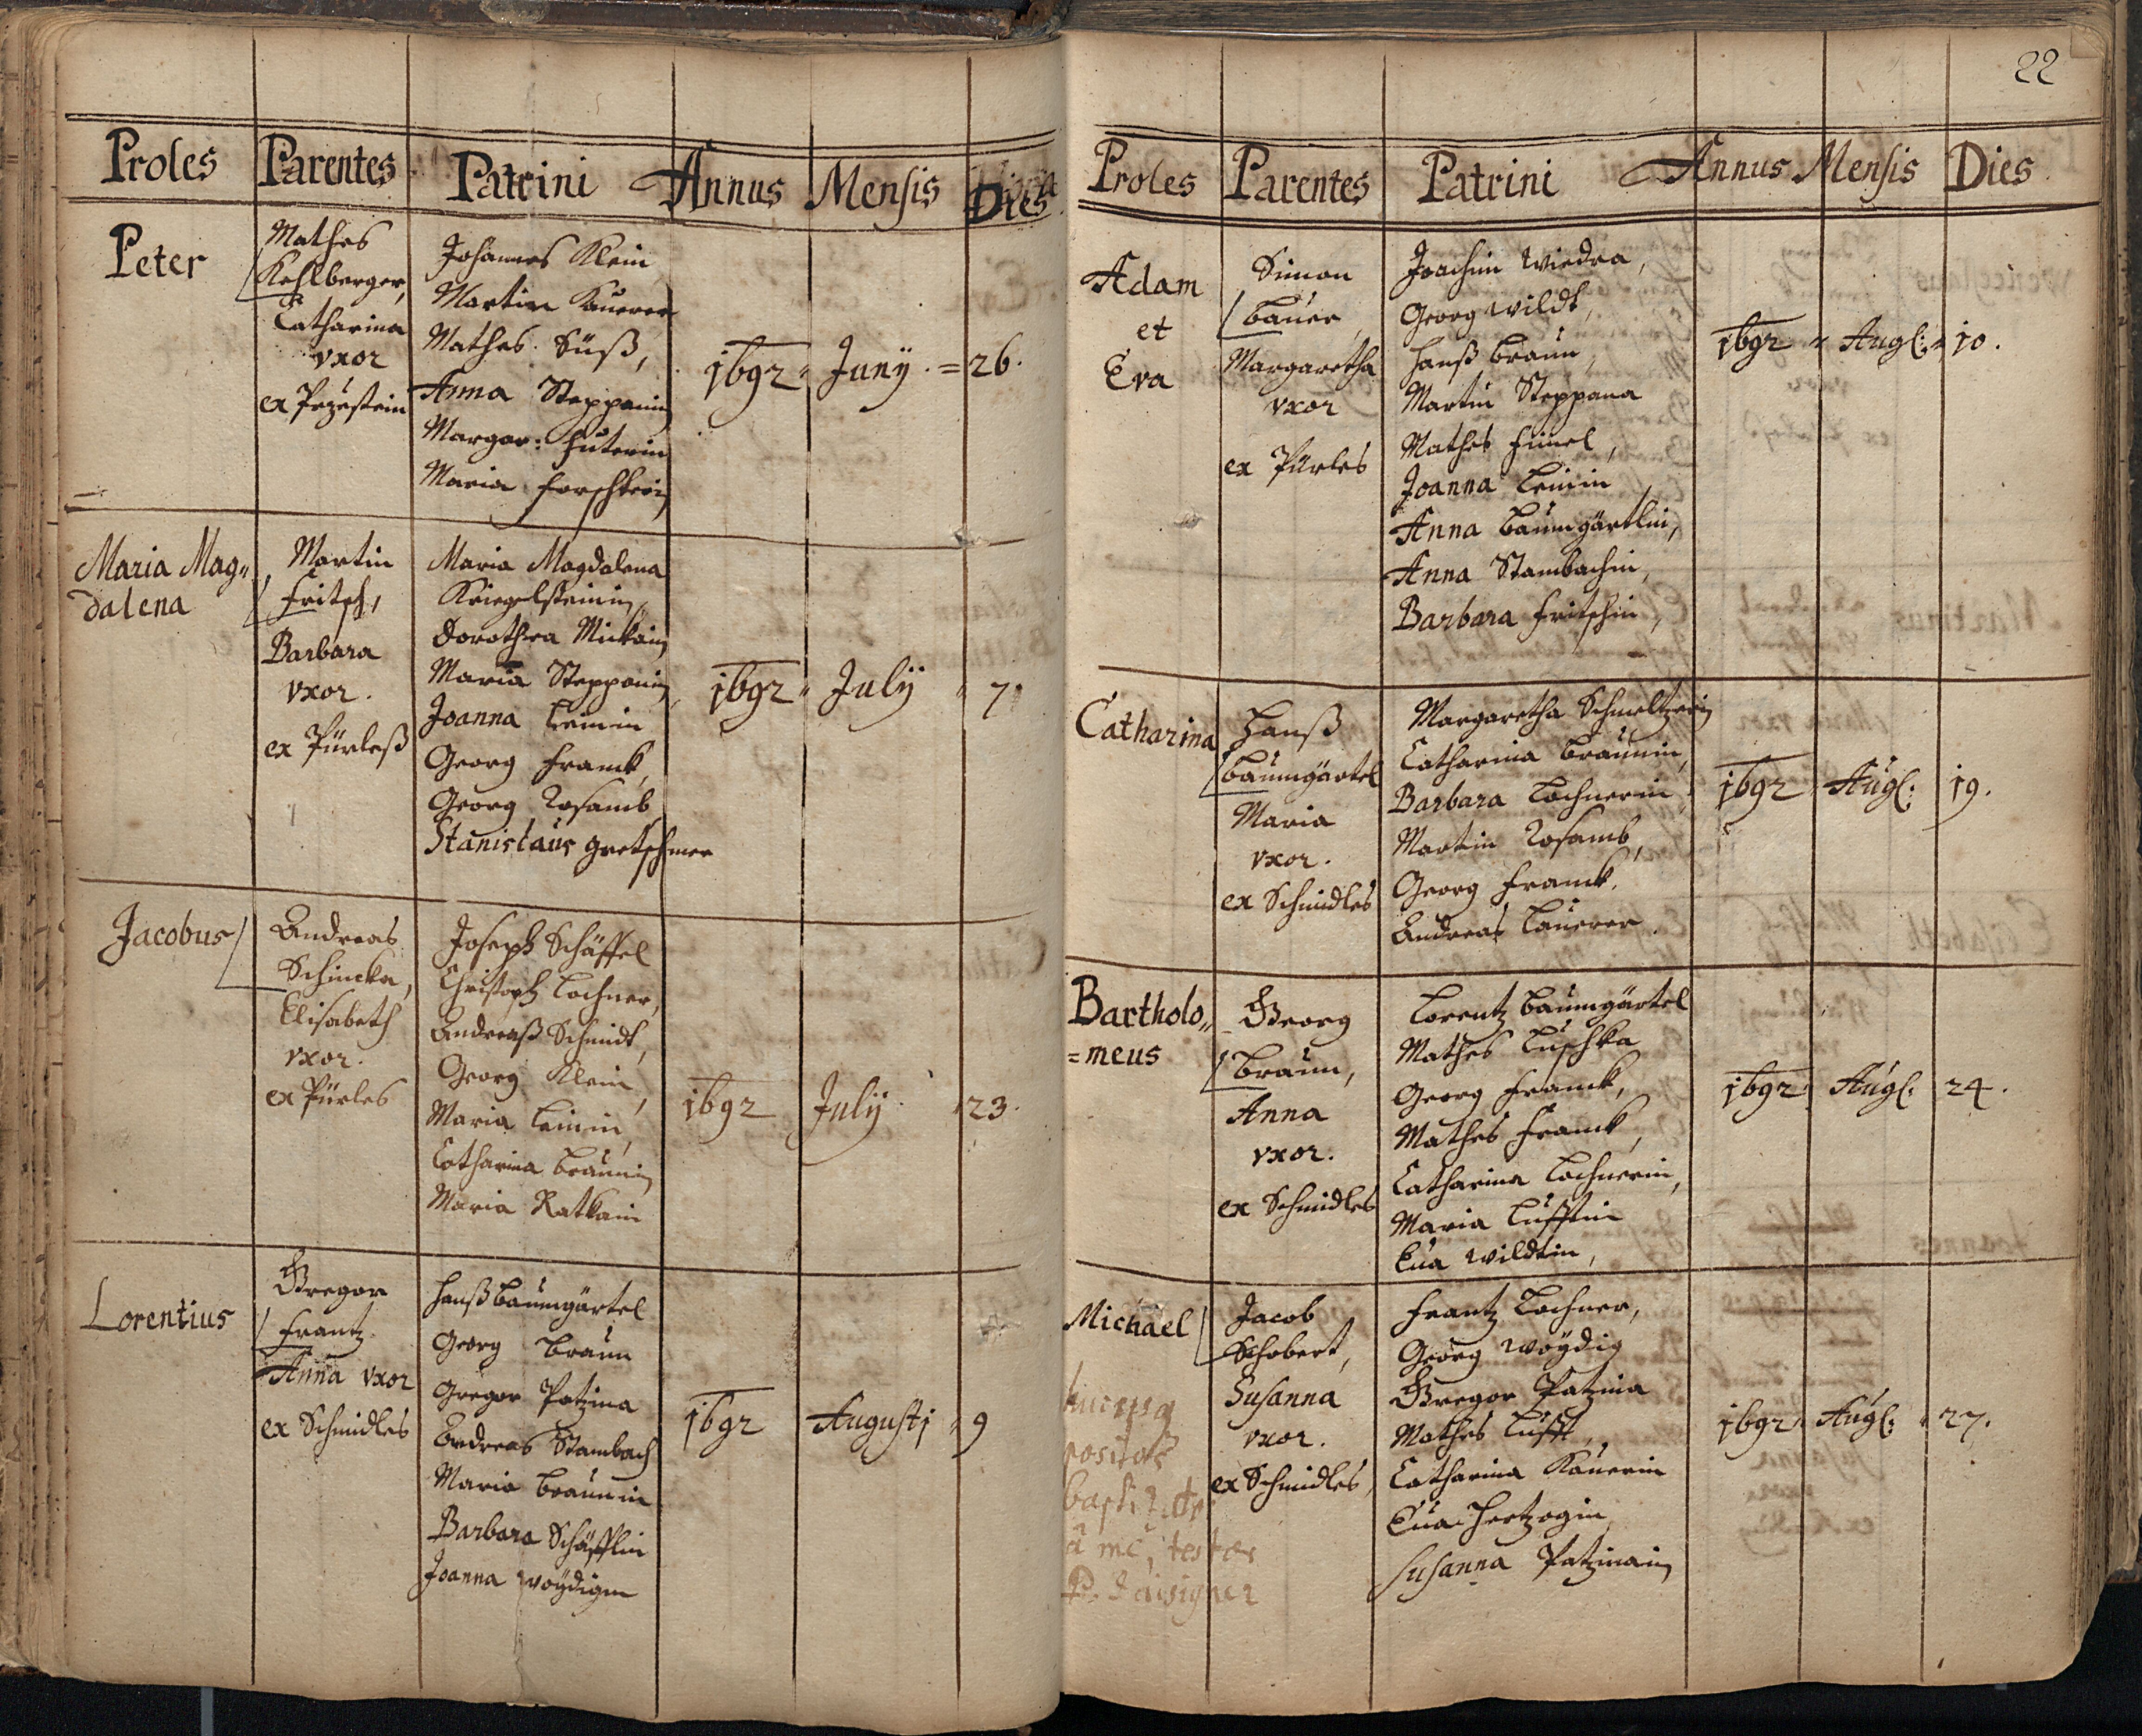 Proles Parentes Patrini Annus Mensis Dies
Peter
Mathes
Kohlberger,
Catharina
vxor
ex Pezestein
Johannes Klein
Martin Kauerer
Mathes Süß,
Anna Steppanin
Margar: Huterin
Maria Forschterin
1692 Junij = 26.
Maria Mag„
dalena
Martin
Fritsch,
Barbara
vxor.
ex Pürleß
Maria Magdalena
Kriegelsteinin,
Dorothea Mickain
Maria Steppanin
Joanna Leinin
Georg Franck,
Georg Rosamb
Stanislaus Gretschmer
1692 Julij 7
Jacobus
Andreas
Schincka,
Elisabeth
vxor.
ex Pürles
Joseph Schäffel
Christoph Lochner,
Andreaß Schmidt,
Georg Klein,
Maria Leinin,
Catharina Braunin
Maria Ratkain
1692 Julij 23.
Lorentius
Gregor
Frantz
Anna vxor
ex Schmidles
Hanß Baumgärtel
Georg Braun
Gregor Patzina
Andreas Stambach
Maria Braunin
Barbara Schäfflin
Joanna Woydigin
1692 Augustj 9
22
Proles Parentes Patrini Annus Mensis Dies
Adam
et
Eva
Simon
Bauer,
Margaretha
vxor
ex Pürles
Joachim Wiedra,
Georg Wildt,
Hanß Braun,
Martin Steppana
Mathes Himel,
Joanna Leinin
Anna Baumgärtlin,
Anna Stambachin,
Barbara Fritschin,
1692 Aug: 10.
Catharina
Hanß
Baumgärtel
Maria
vxor.
ex Schmidles
Margaretha Schmeltzerin
Catharina Braunin,
Barbara Lochnerin,
Martin Rosamb,
Georg Franck,
Andreas Lauerer.
1692 Aug: 19.
Bartholo„
=meus
Georg
Braun,
Anna
vxor.
ex Schmidles
Lorentz Baumgärtel
Mathes Luschka
Georg Franck,
Mathes Franck,
Catharina Lochnerin,
Maria Lufftin
Eua Wildtin,
1692 Aug: 24.
Michael
Jacob
Schobert,
Susanna
vxor.
ex Schmidles,
Frantz Lochner,
Georg Woydig
Gregor Patzina
Mathes Lufft,
Catharina Kauerin
Eua Hertzogin
Susanna Patzinain
1692 Aug: 27.
hucusq
positos
a me, testor